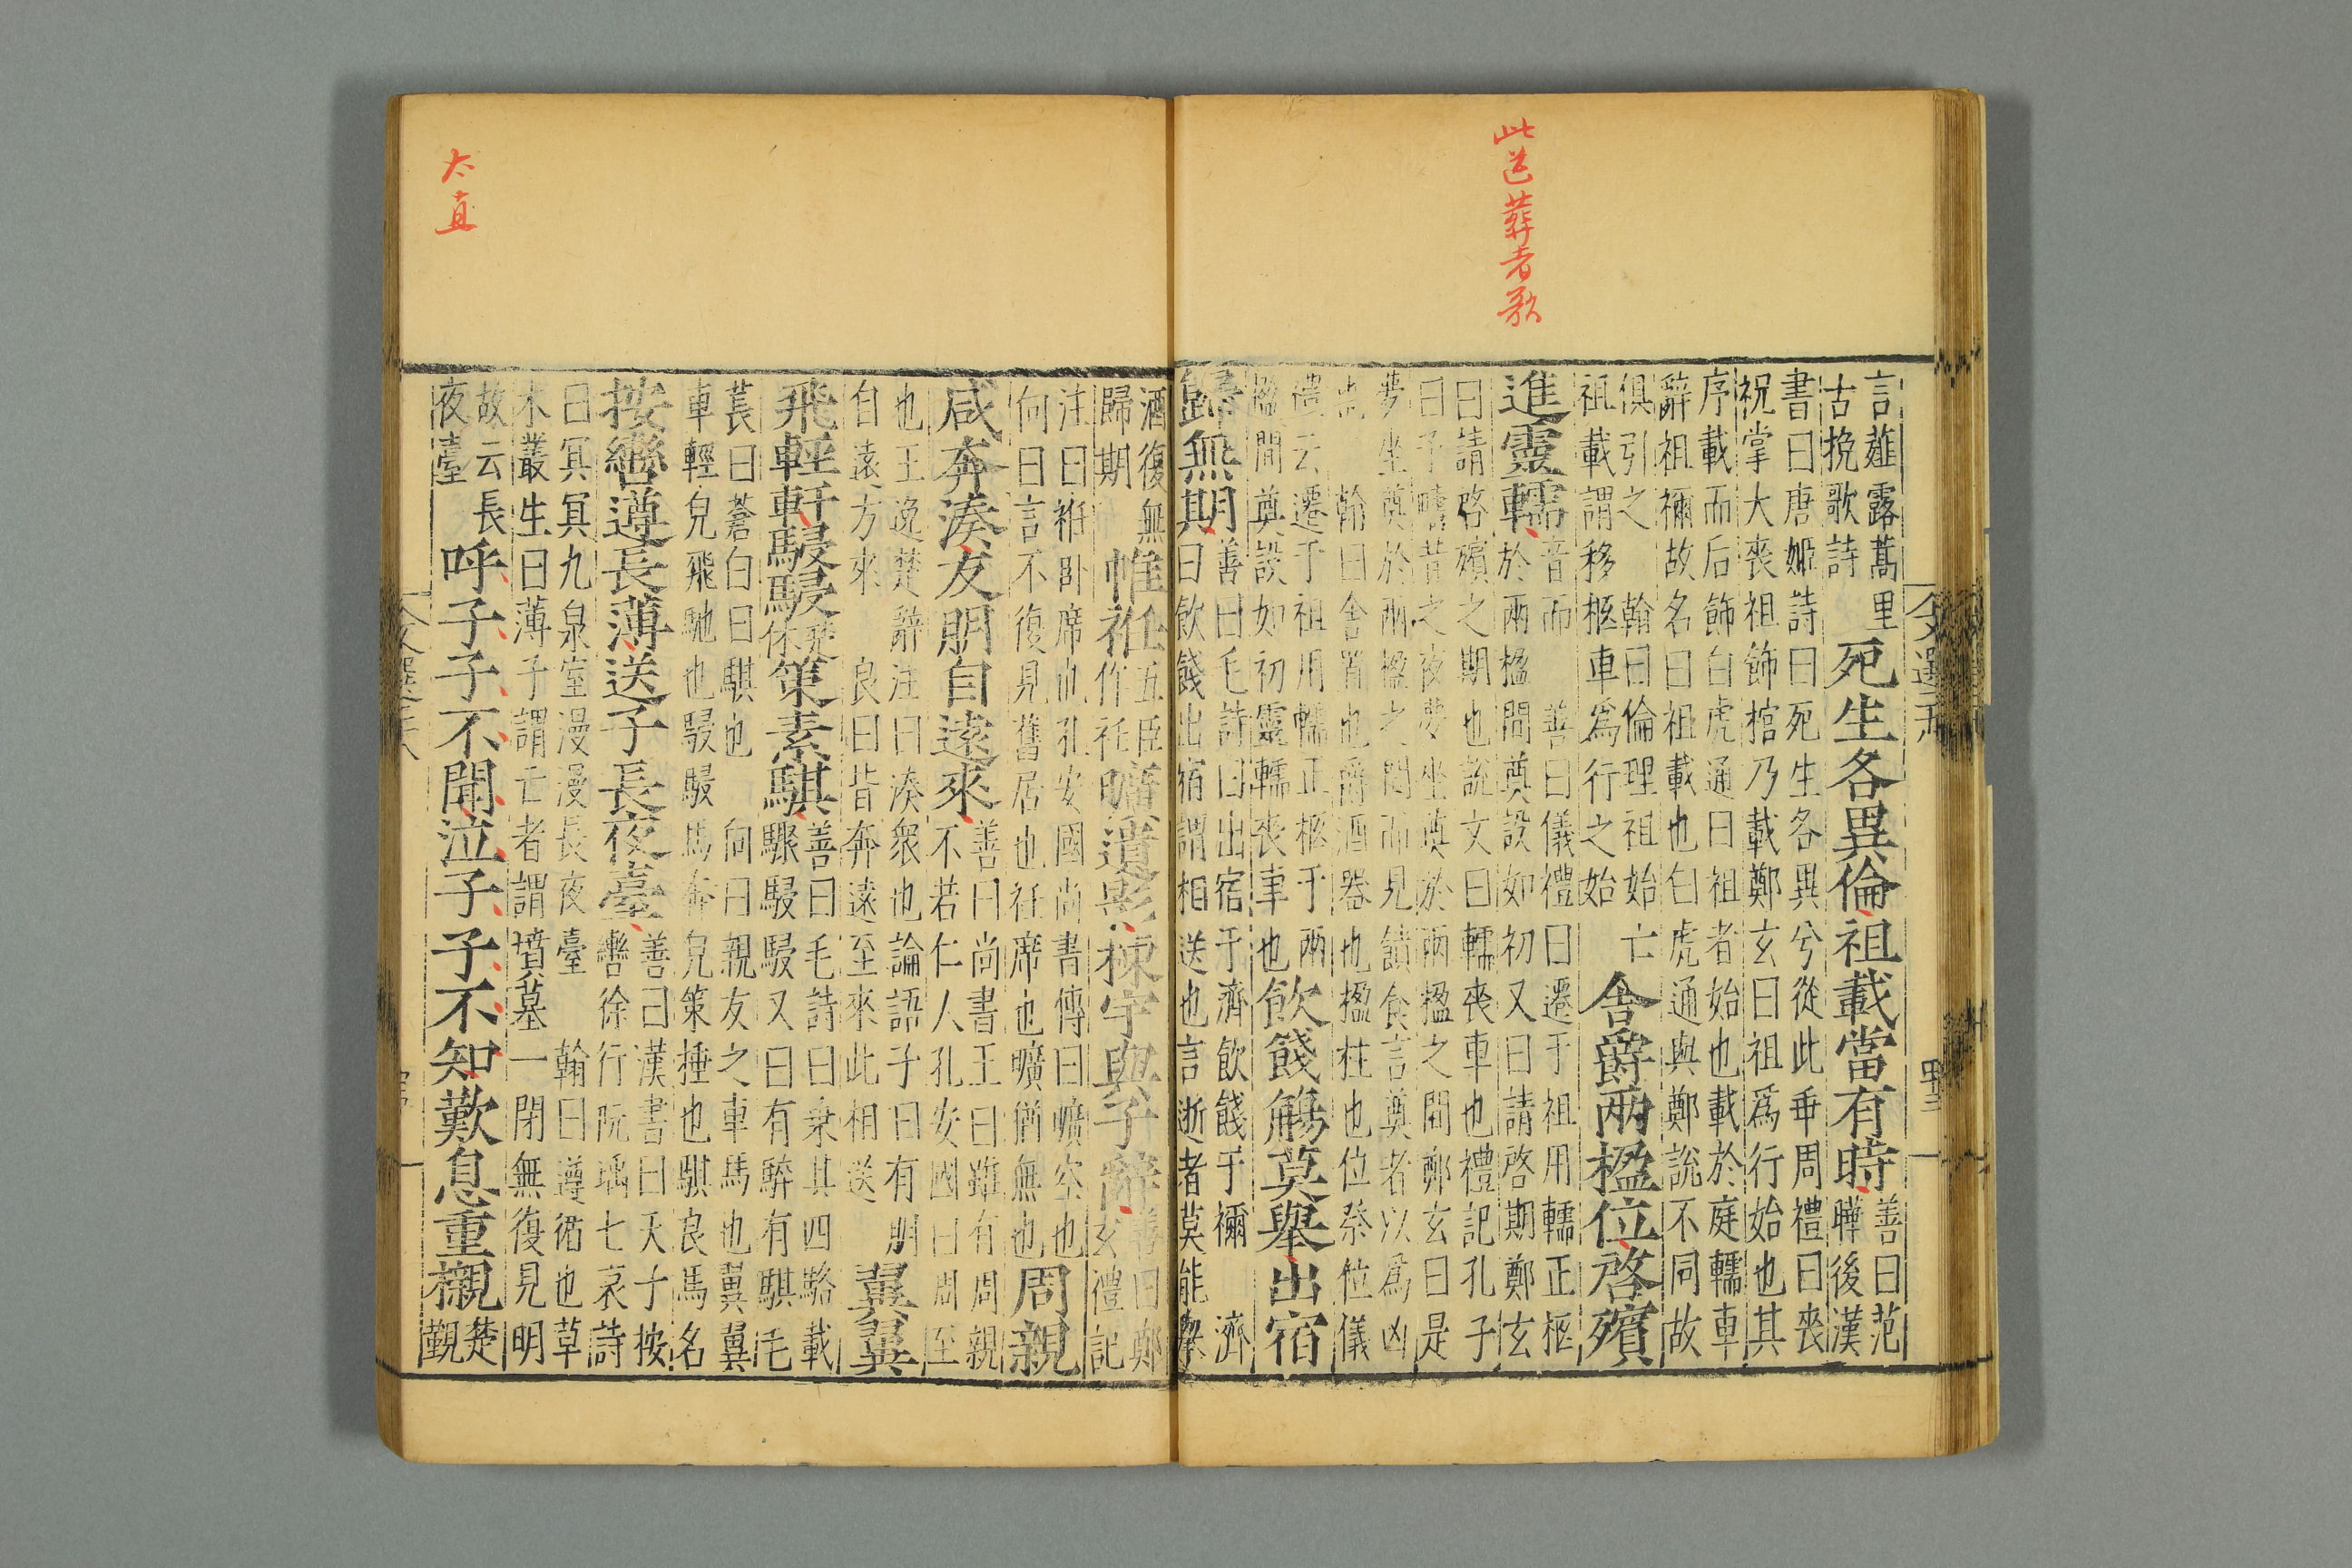 此送葬者歌
言薤露蒿里
古挽歌詩
死生各異倫祖載當有時
善曰范
曄後漢
書曰唐姬詩曰死生各異兮從此乖周禮曰喪
祝掌大喪祖飾棺乃載鄭玄曰祖爲行始也其
序載而后飾白虎通曰祖者始也載於庭轜車
辭祖禰故名曰祖載也白虎通與鄭說不同故
俱引之 翰曰倫理祖始亡
祖載謂移柩車爲行之始
舍爵兩楹位啓殯
進靈轜
音而 善曰儀禮曰遷于祖用轜正柩
於兩楹間奠設如初又曰請啓期鄭玄
曰請啓殯之期也說文曰轜喪車也禮記孔子
曰予疇昔之夜夢坐奠於兩楹之間鄭玄曰是
夢坐奠於兩楹之間而見饋食言奠者以爲凶
也 翰曰舍置也爵酒器也楹柱也位祭位儀
禮云遷于祖用轜正柩于兩
楹間奠設如初靈轜喪車也
飲餞觴莫舉出宿
歸無期
善曰毛詩曰出宿于濟飲餞于禰 濟
曰飲餞出宿謂相送也言逝者莫能舉
太直
酒復無
歸期
帷衽
五臣
作袵
曠遺影棟宇與子辭
善曰鄭
玄禮記
注曰袵卧席也孔安國尚書傳曰曠空也
向曰言不復見舊居也衽席也曠猶無也
周親
咸奔湊友朋自遠來
善曰尚書王曰雖有周親
不若仁人孔安國曰周至
也王逸楚辭注曰湊衆也論語子曰有朋
自遠方來 良曰皆奔遠至來此相送
翼翼
飛輕軒駸駸
策素騏
善曰毛詩曰乘其四駱載
驟駸駸又曰有騂有騏毛
萇曰蒼白曰騏也 向曰親友之車馬也翼翼
車輕皃飛馳也駸駸馬奔皃策捶也騏良馬名
按轡遵長薄送子長夜臺
善曰漢書曰天子按
轡徐行阮瑀七哀詩
曰冥冥九泉室漫漫長夜臺 翰曰遵循也草
木叢生曰薄子謂亡者謂墳墓一閉無復見明
故云長
夜臺
呼子子不聞泣子子不知歎息重櫬
楚
覲